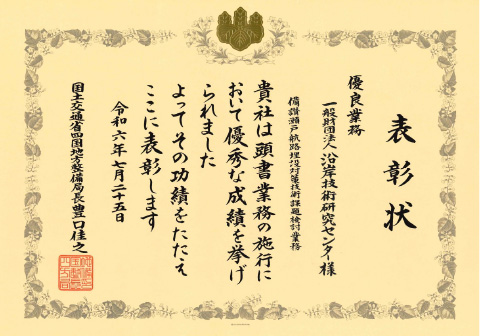 表彰状
優良業務
一般財団法人 沿岸技術研究センター様
備讃瀬戸航路埋没対策技術課題検討業務
貴社は頭書業務の施行に
おいて優秀な成績を挙げ
られました
よってその功績をたたえ
ここに表彰します
令和六年七月二十五日
国土交通省四国地方整備局長 豊口佳之